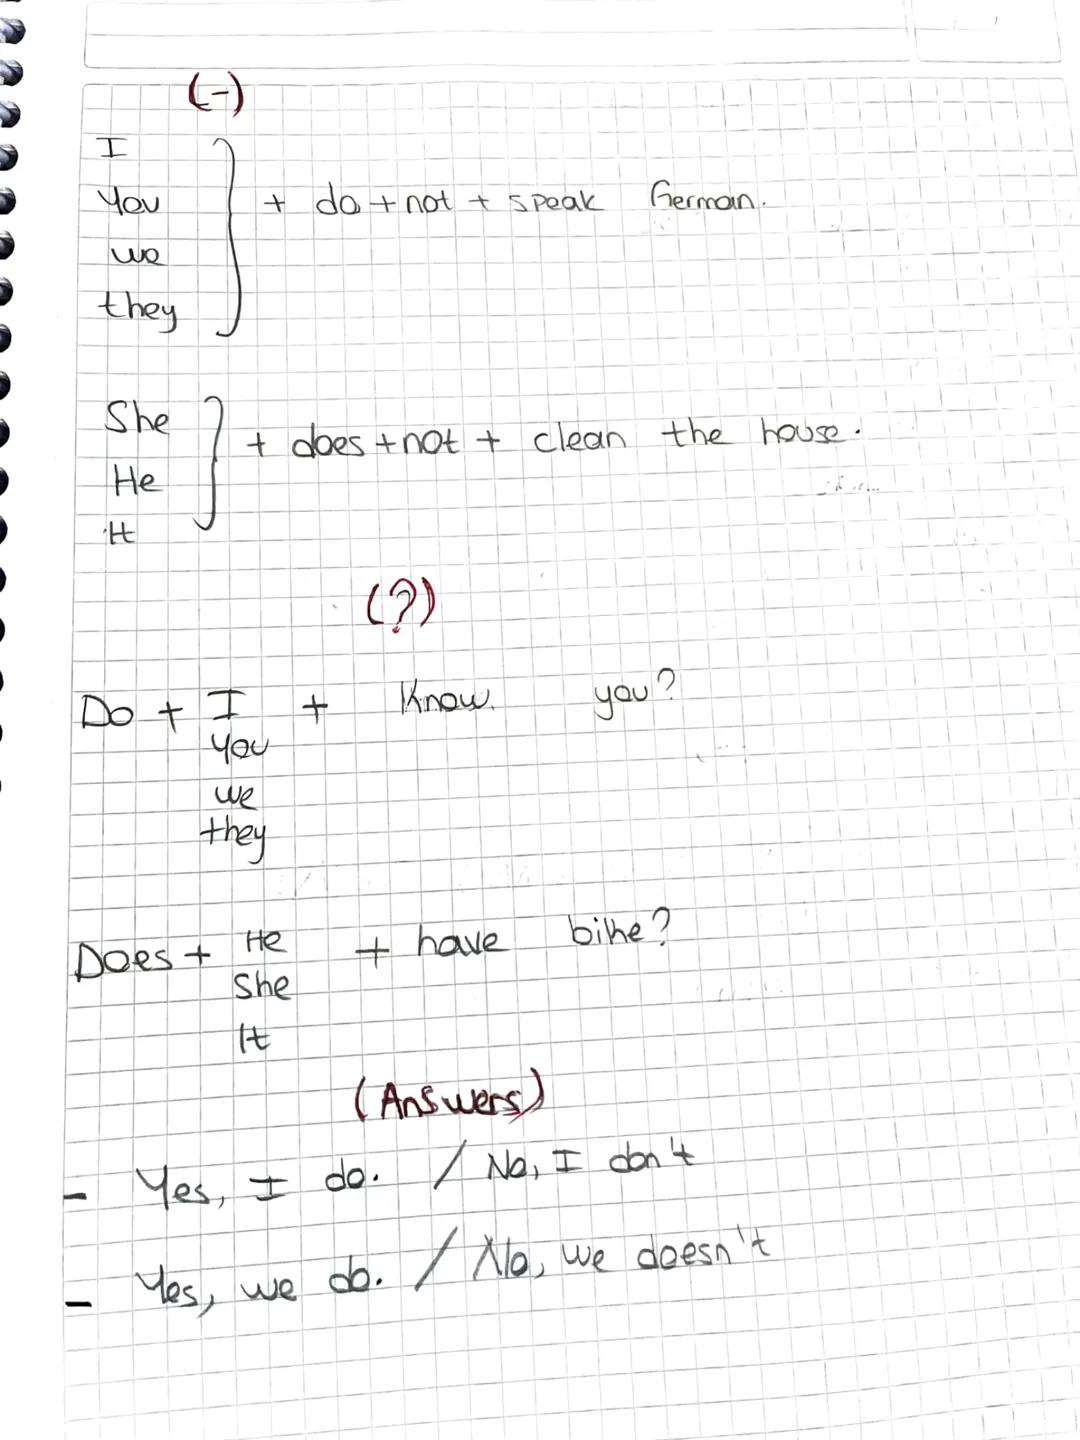 (-)
I
You
we
they
+ do + not + speak German.
She
He
It
+ does + not + clean the house.
(?)
Do + I + Know you?
you
we
they
Does + He + have bike?
She
It
(Answers)
- Yes, I do. / No, I don't
- Yes, we do. / No, we doesn't